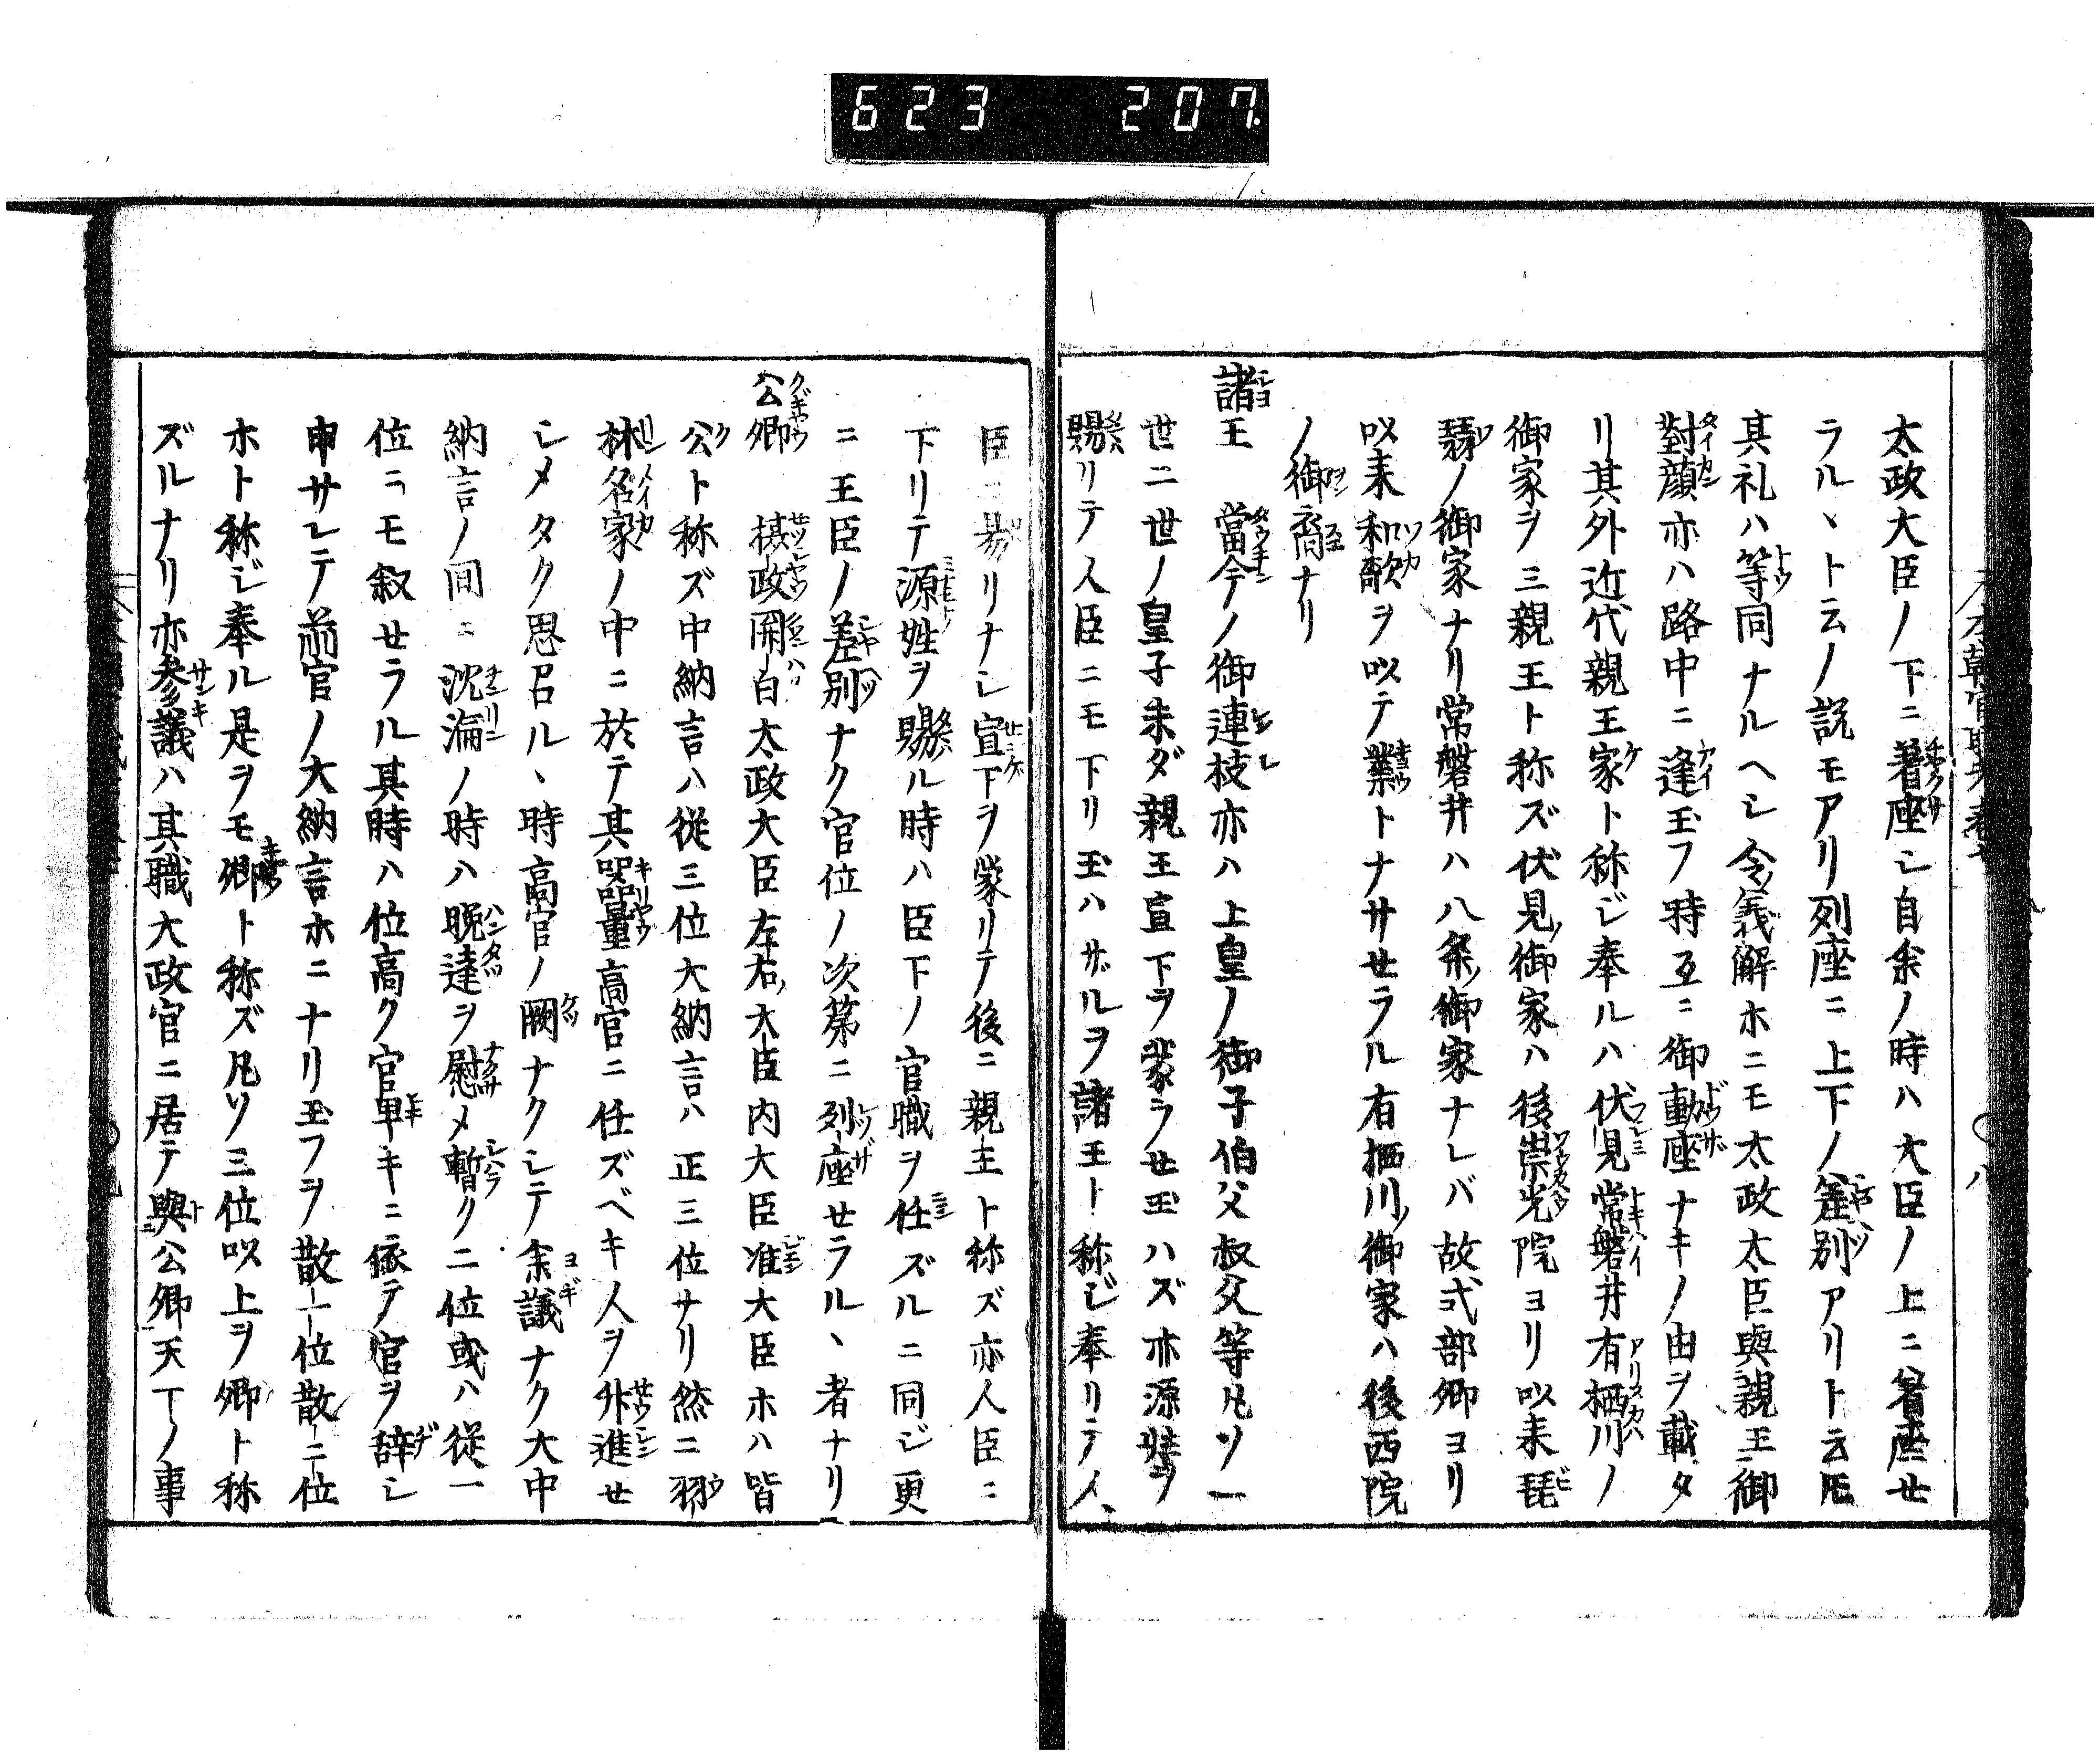 623 207.
太政大臣ノ下ニ着座シ自余ノ時ハ大臣ノ上ニ着座セ
ラルヽト云ノ説モアリ列座ニ上下ノ差別アリト云ヒ
其礼ハ等同ナルヘシ令義解ホニモ太政大臣與親王御
對顔亦ハ路中ニ逢玉フ時互ニ御動座ナキノ由ヲ載タ
リ其外近代親王家ト称ジ奉ルハ伏見常磐井有栖川ノ
御家ヲ三親王ト称ズ伏見ノ御家ハ後崇光院ヨリ以来琵
琶ノ御家ナリ常磐井ハ八条ノ御家ナレバ故式部卿ヨリ
以来和歌ヲ以テ業トナサセラル有栖川ノ御家ハ後西院
ノ御裔ナリ
諸王 當今ノ御連枝亦ハ上皇ノ御子伯父叔父等凡ソ一
世二世ノ皇子未ダ親王宣下ヲ蒙ラセ玉ハズ亦源姓ヲ
賜リテ人臣ニモ下リ玉ハザルヲ諸王ト称ジ奉リテ人
臣ニ昜リナシ宣下ヲ蒙リテ後ニ親王ト称ズ亦人臣ニ
下リテ源姓ヲ賜ル時ハ臣下ノ官職ヲ任ズルニ同ジ更
ニ王臣ノ差別ナク官位ノ次第ニ列座セラルヽ者ナリ
公卿 摂政関白太政大臣左右ノ大臣内大臣准大臣ホハ皆
公ト称ズ中納言ハ従三位大納言ハ正三位ナリ然ニ羽
林名家ノ中ニ於テ其器量高官ニ任ズベキ人ヲ外進セ
シメタク思召ルヽ時高官ノ闕ナクシテ余議ナク大中
納言ノ間ニ沈淪ノ時ハ晩達ヲ慰メ暫ク二位或ハ従一
位ニモ叙セラル其時ハ位高ク官卑キニ依テ官ヲ辞シ
申サレテ前官ノ大納言ホニナリ玉フヲ散一位散二位
ホト称ジ奉ル是ヲモ卿ト称ズ凡ソ三位以上ヲ卿ト称
ズルナリ亦参議ハ其職大政官ニ居テ與公卿天下ノ事